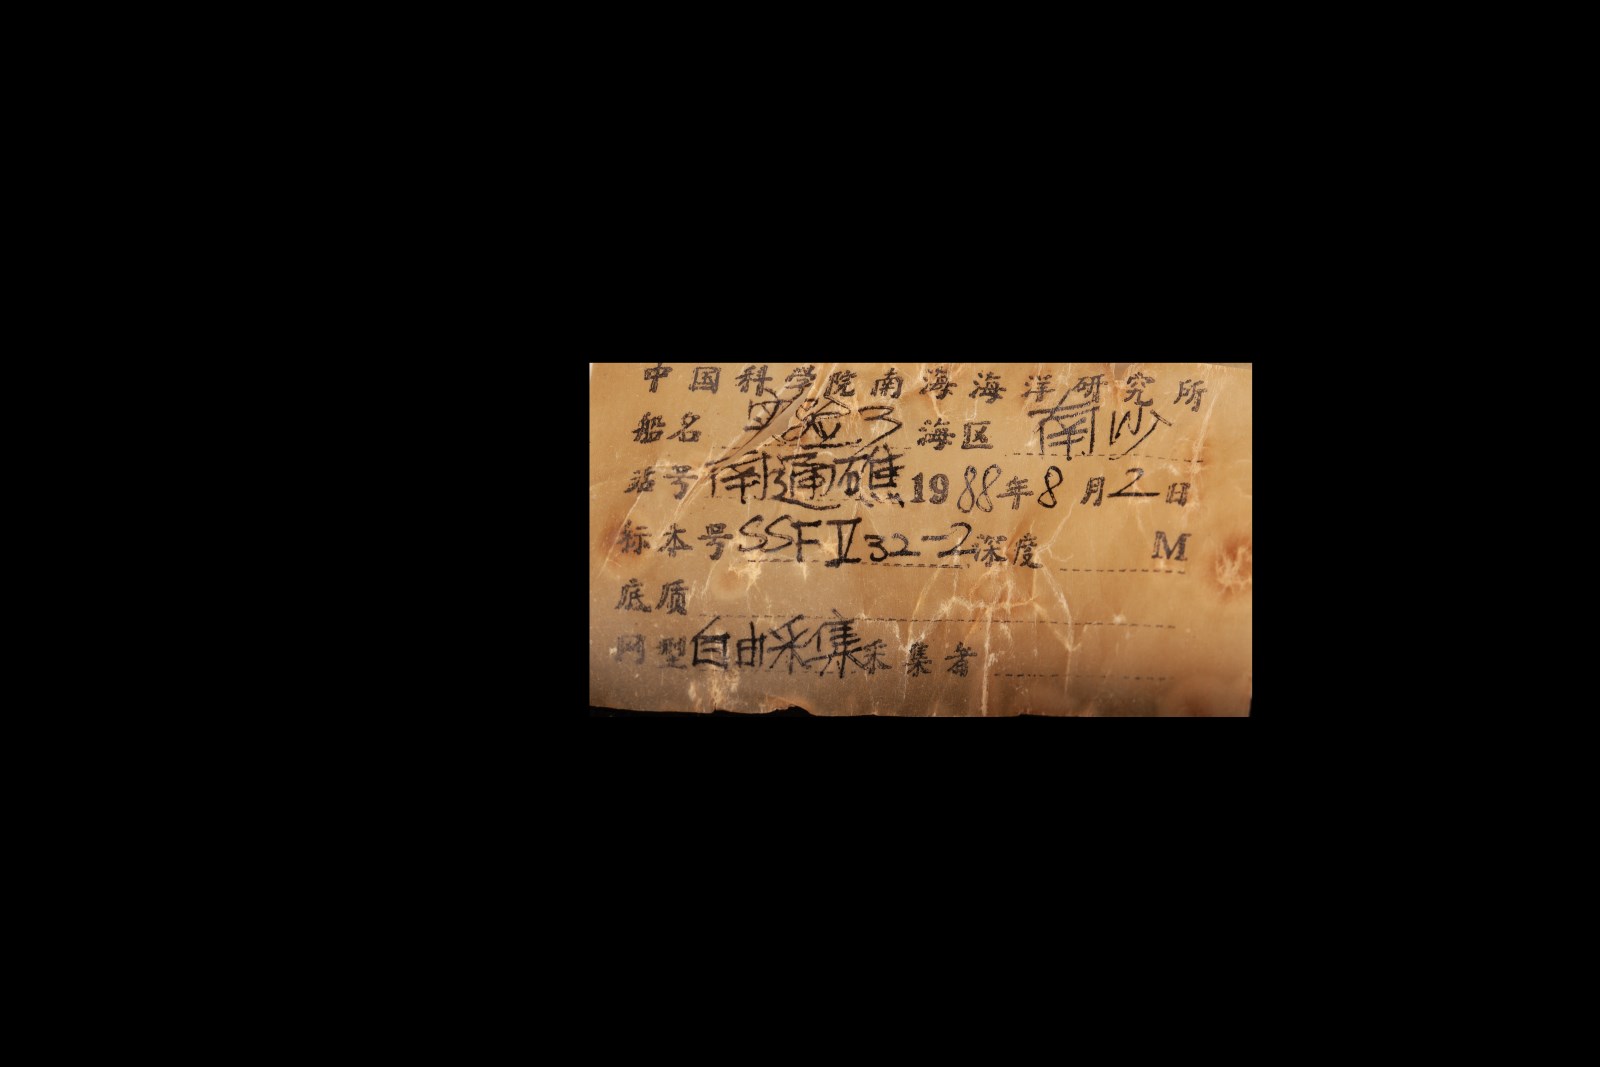 中国科学院南海海洋研究所
船名 实验3 海区 南沙
站号 南通礁 1988年8月2日
标本号 SSFⅡ32-2 深度 M
底质
网型 自由采集 采集者